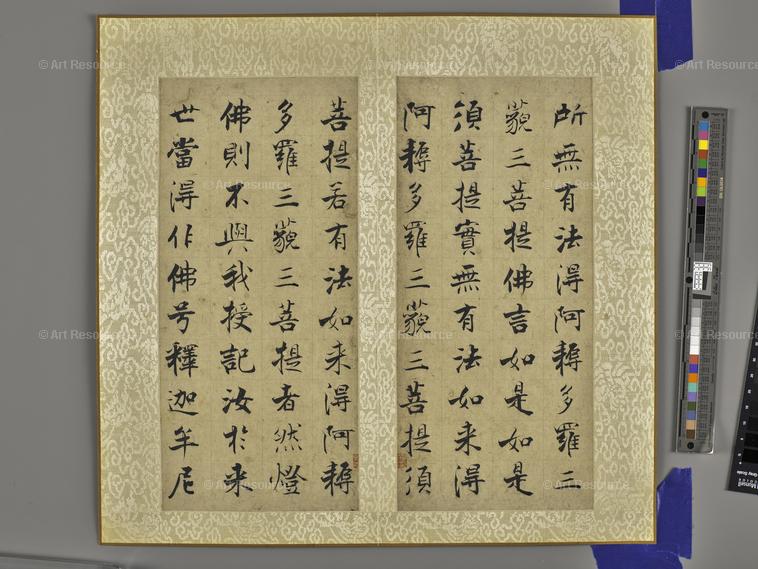 所無有法得阿耨多羅三
藐三菩提佛言如是如是
須菩提實無有法如来得
阿耨多羅三藐三菩提須
菩提若有法如来得阿耨
多羅三藐三菩提者然燈
佛則不與我授記汝於来
世當得作佛号釋迦牟尼
© Art Resource